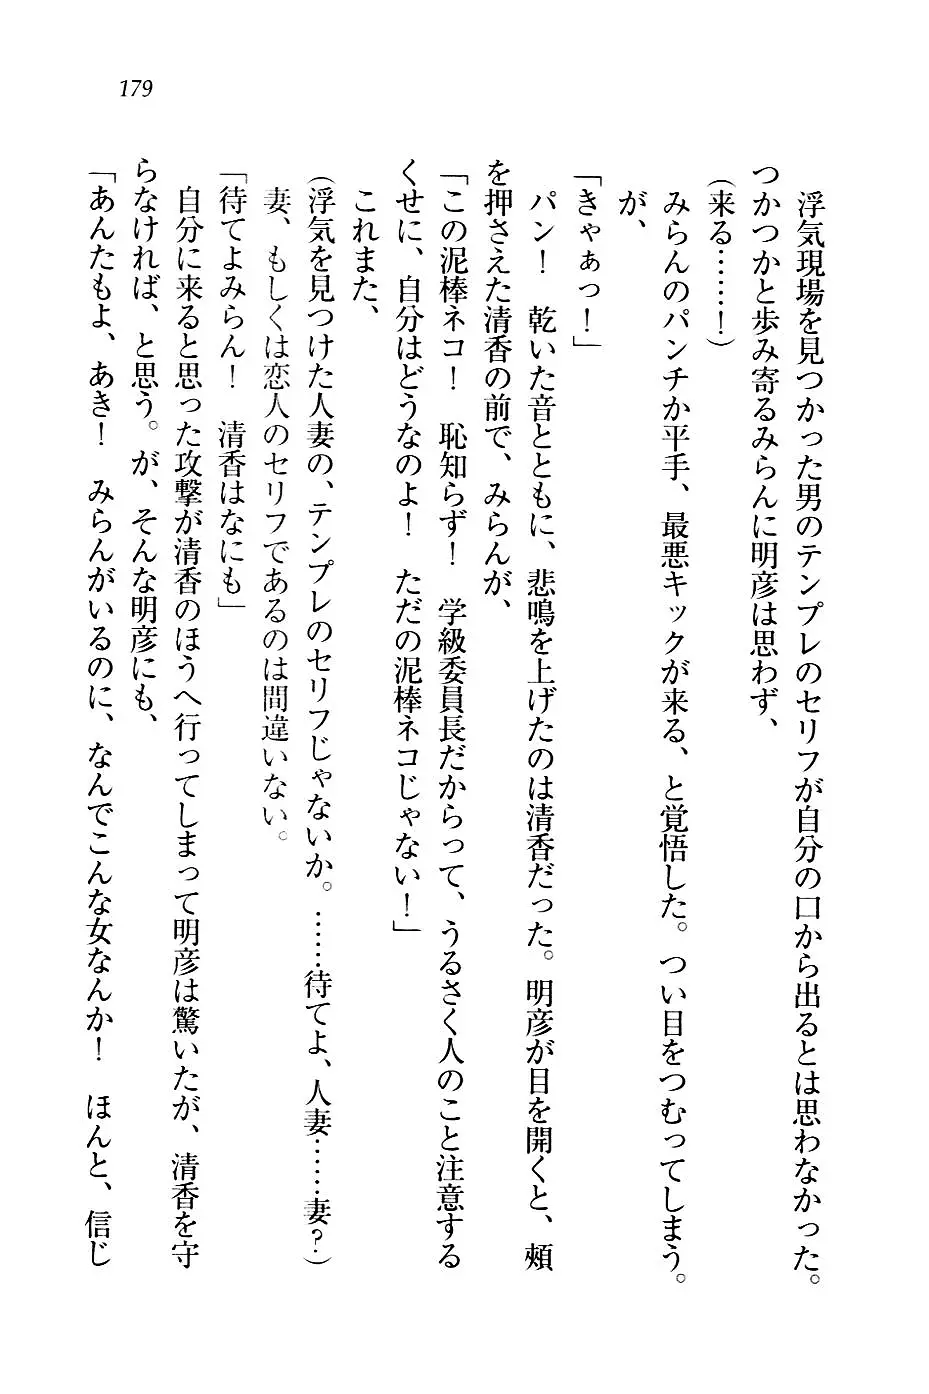 179
浮気現場を見つかった男のテンプレのセリフが自分の口から出るとは思わなかった。
つかつかと歩み寄るみらんに明彦は思わず、
（来る……！）
みらんのパンチか平手、最悪キックが来る、と覚悟した。つい目をつむってしまう。
が、
「きゃぁっ！」
パン！　乾いた音とともに、悲鳴を上げたのは清香だった。明彦が目を開くと、頰
を押さえた清香の前で、みらんが、
「この泥棒ネコ！　恥知らず！　学級委員長だからって、うるさく人のこと注意する
くせに、自分はどうなのよ！　ただの泥棒ネコじゃない！」
これまた、
（浮気を見つけた人妻の、テンプレのセリフじゃないか。……待てよ、人妻……妻？）
妻、もしくは恋人のセリフであるのは間違いない。
「待てよみらん！　清香はなにも」
自分に来ると思った攻撃が清香のほうへ行ってしまって明彦は驚いたが、清香を守
らなければ、と思う。が、そんな明彦にも、
「あんたもよ、あき！　みらんがいるのに、なんでこんな女なんか！　ほんと、信じ